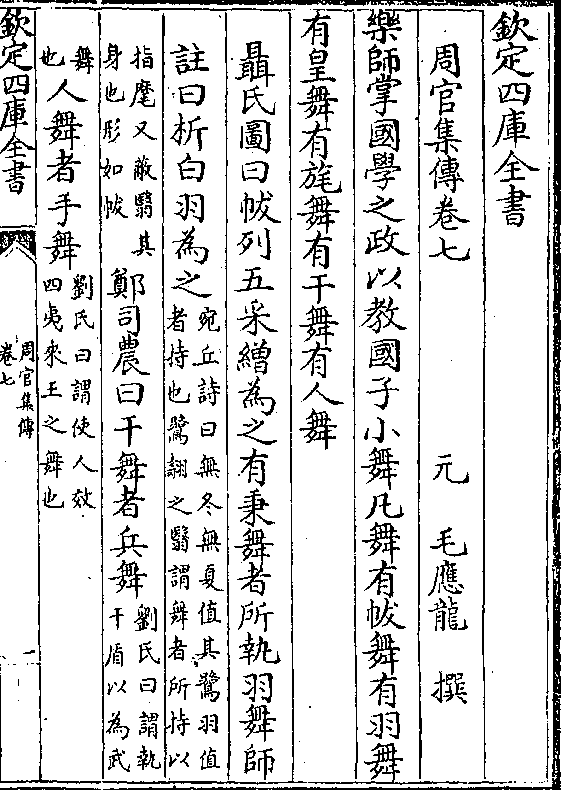 欽定四庫全書
周官集傳卷七　元　毛應龍　撰
樂師掌國學之政以教國子小舞凡舞有帗舞有羽舞
有皇舞有旄舞有干舞有人舞
聶氏圖曰帗列五采繒為之有秉舞者所執羽舞師
註曰析白羽為之
宛丘詩曰無冬無夏值其鷺羽值
者持也鷺翿之翳謂舞者所持以
指麾又蔽翳其
身也形如帗
鄭司農曰干舞者兵舞
劉氏曰謂執
干盾以為武
舞
也
人舞者手舞
劉氏曰謂使人效
四夷來王之舞也
欽定四庫全書
周官集傳
卷七
一